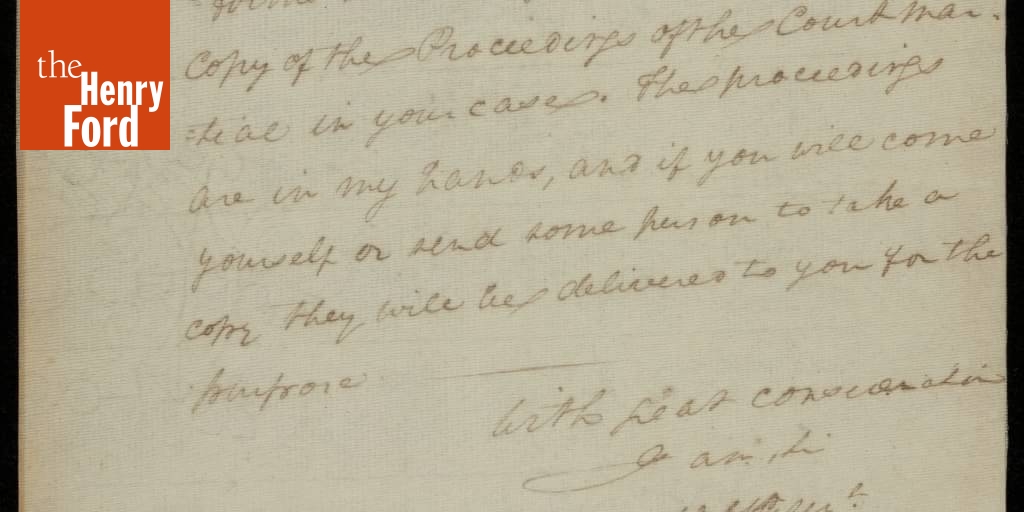 the
Henry
Ford
Copy of the Proceedings of the Court mar-
=tial in your case. The proceedings
are in my hands, and if you will come
yourself or send some person to take a
copy they will be delivered to you for the
purpose
With great consideration
I am, Sir